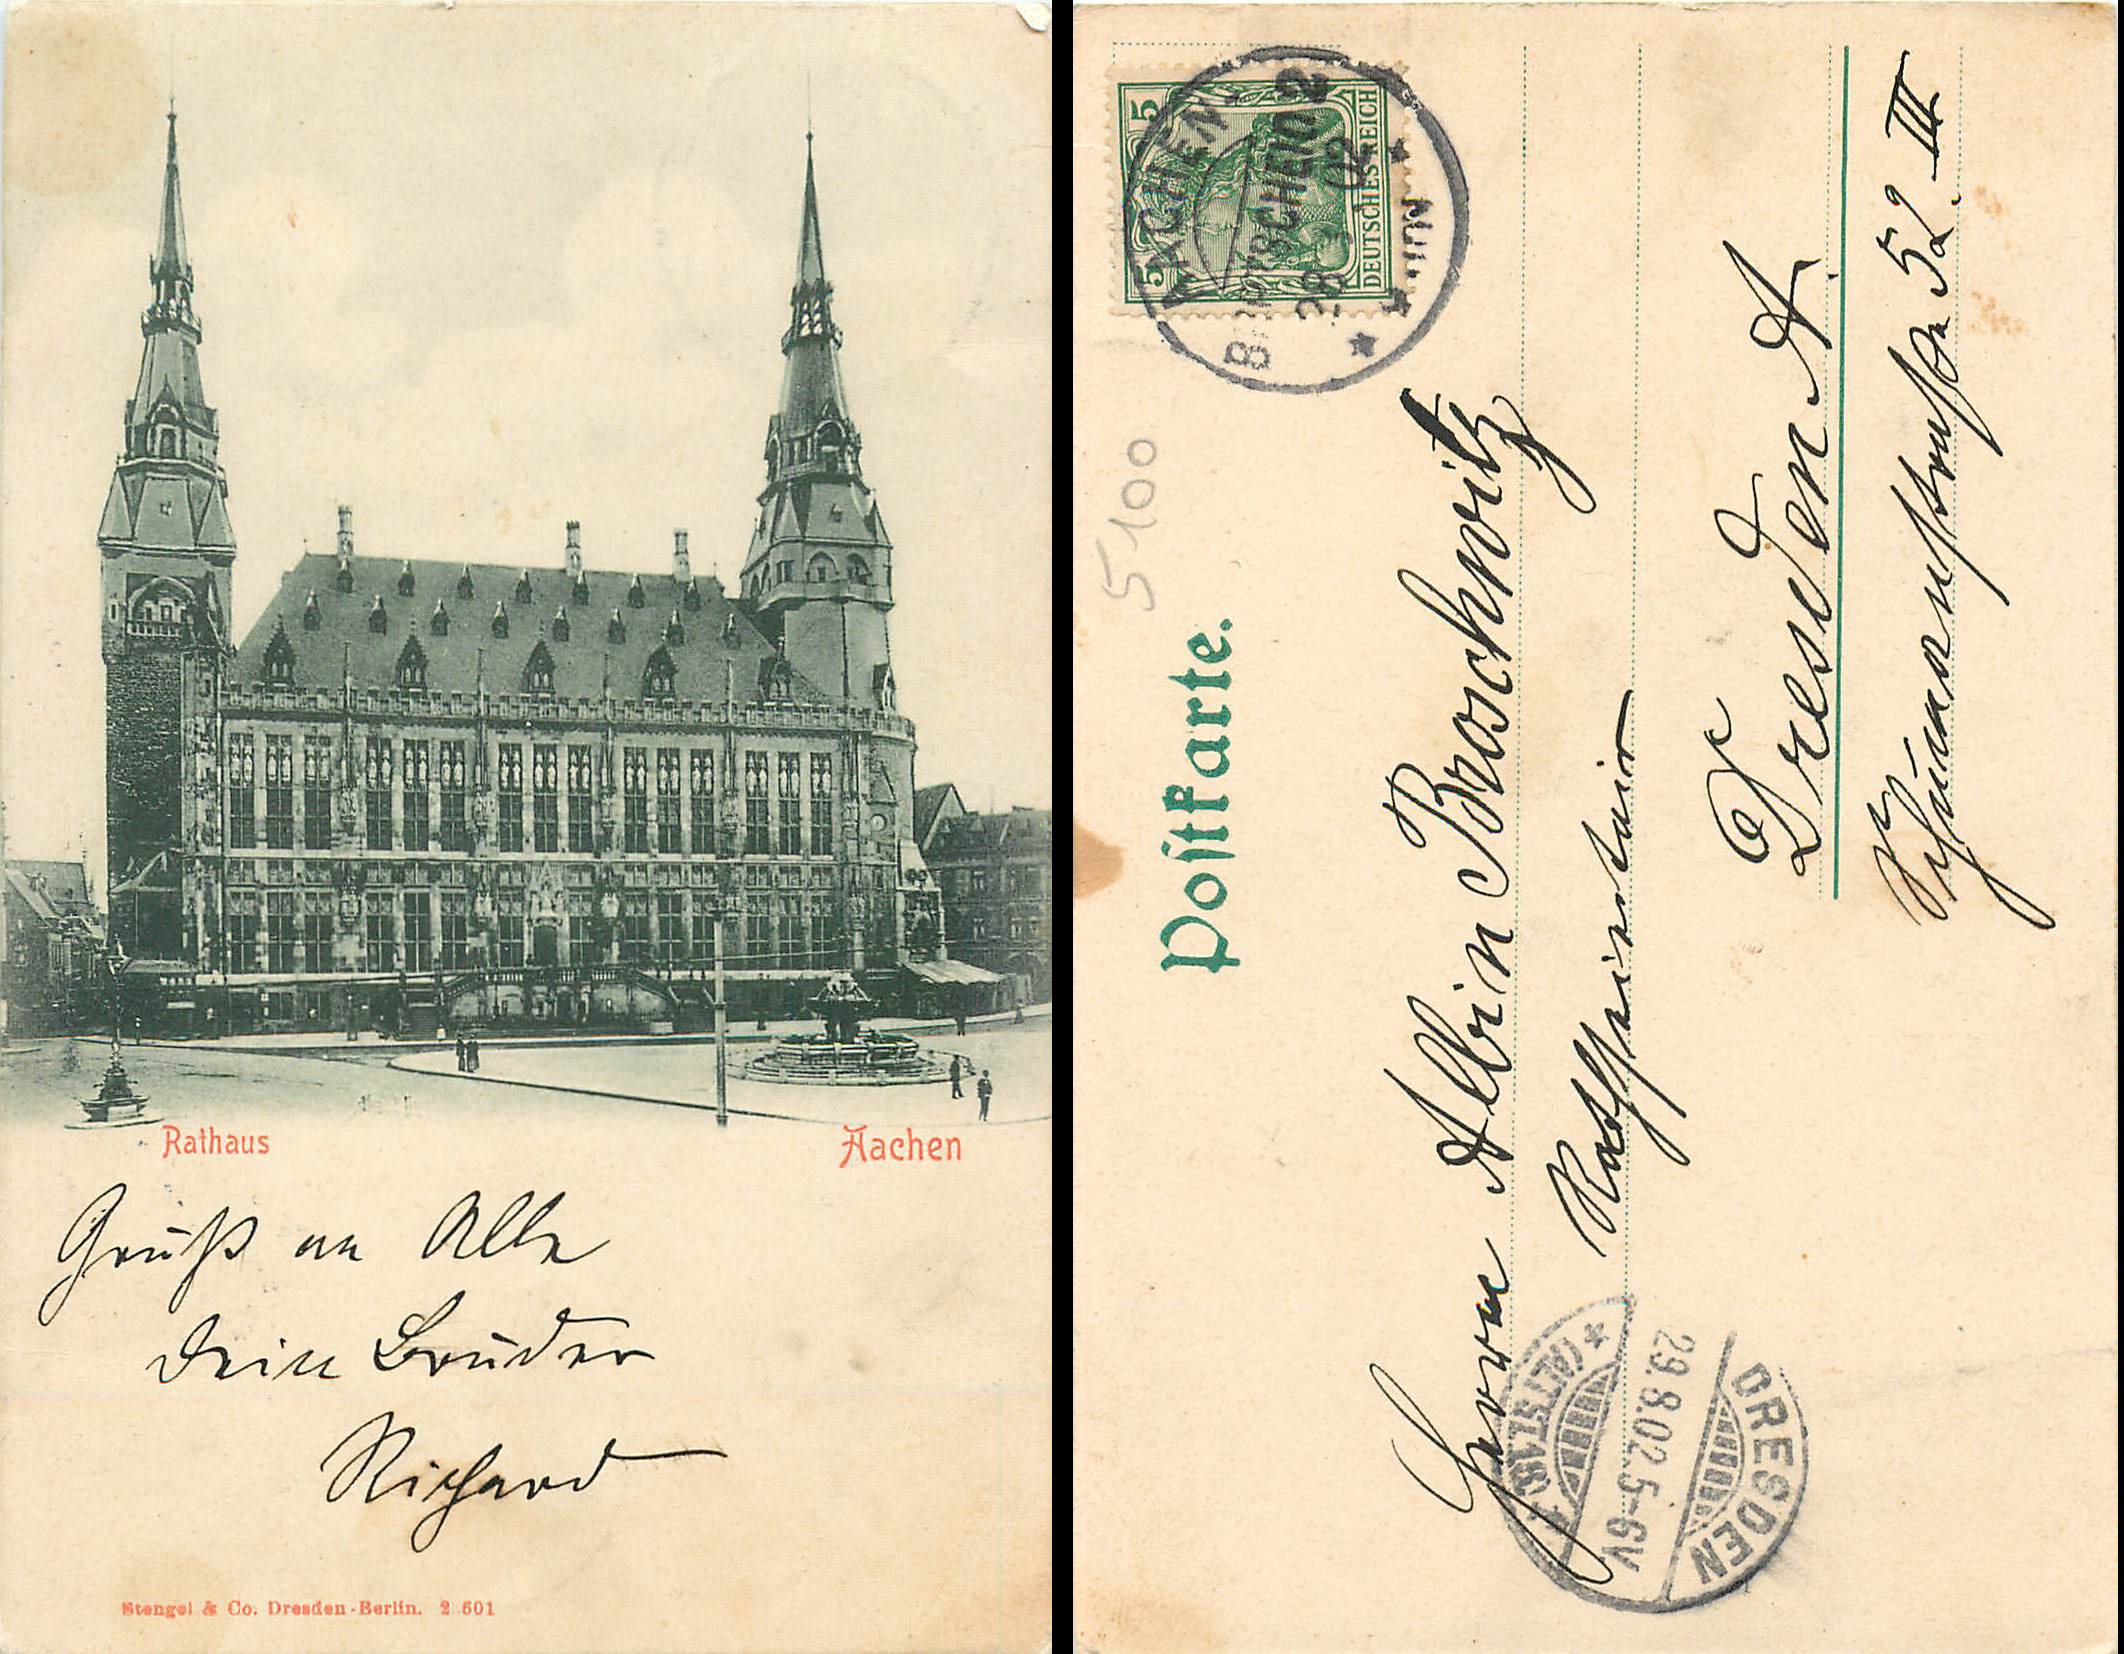 Rathaus
Aachen
Gruß an Alle
Dein Bruder
Richard
Stengel & Co. Dresden-Berlin. 2 501
5 5
DEUTSCHES REICH
AACHEN
BURTSCHEID 2
28 8 02
5100
Postkarte.
Herrn Albin Broschwitz
Dresden A.
52. III
DRESDEN
29.8.02.5-6V
(ALTST.)